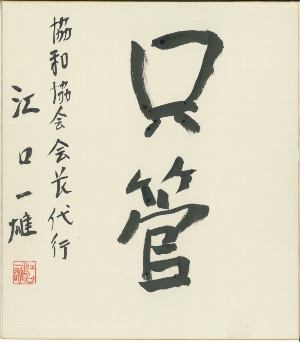 只管
協和協会会長代行
江口一雄